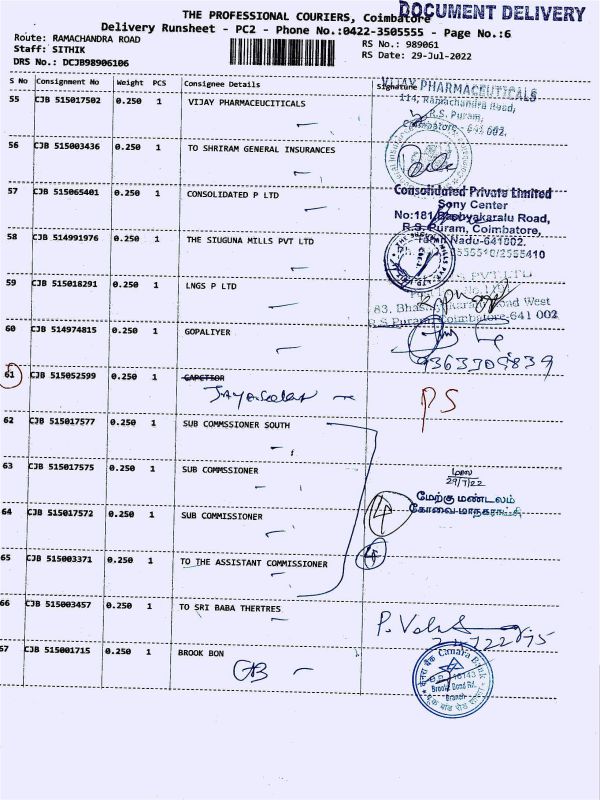 THE PROFESSIONAL COURIERS, Coimbatore
DOCUMENT DELIVERY
Delivery Runsheet - PC2 - Phone No.:0422-3505555 - Page No.:6
Route: RAMACHANDRA ROAD
RS No.: 989061
Staff: SITHIK
RS Date: 29-Jul-2022
DRS No.: DCJB98906106
S No Consignment No Weight PCS Consignee Details Signature
55 CJB 515017502 0.250 1 VIJAY PHARMACEUCITICALS
VIJAY PHARMACEUTICALS
114, Ramachandra Road,
R.S. Puram,
Coimbatore - 641 002.
56 CJB 515003436 0.250 1 TO SHRIRAM GENERAL INSURANCES
57 CJB 515065401 0.250 1 CONSOLIDATED P LTD
Consolidated Private Limited
Sony Center
No:181, Bashyakaralu Road,
R.S. Puram, Coimbatore,
Tamil Nadu-641002.
58 CJB 514991976 0.250 1 THE SIUGUNA MILLS PVT LTD
59 CJB 515018291 0.250 1 LNGS P LTD
PVT LTD
83. Road West
R.S. Puram, Coimbatore-641 002
60 CJB 514974815 0.250 1 GOPALIYER
9363309839
61 CJB 515052599 0.250 1
PS
62 CJB 515017577 0.250 1 SUB COMMSSIONER SOUTH
63 CJB 515017575 0.250 1 SUB COMMSSIONER
29/7/22
மேற்கு மண்டலம்
கோவை மாநகராட்சி
64 CJB 515017572 0.250 1 SUB COMMISSIONER
4
65 CJB 515003371 0.250 1 TO THE ASSISTANT COMMISSIONER
4
66 CJB 515003457 0.250 1 TO SRI BABA THERTRES
67 CJB 515001715 0.250 1 BROOK BON
CB
केनरा बैंक Canara Bank
Brooke Bond Rd.
Branch